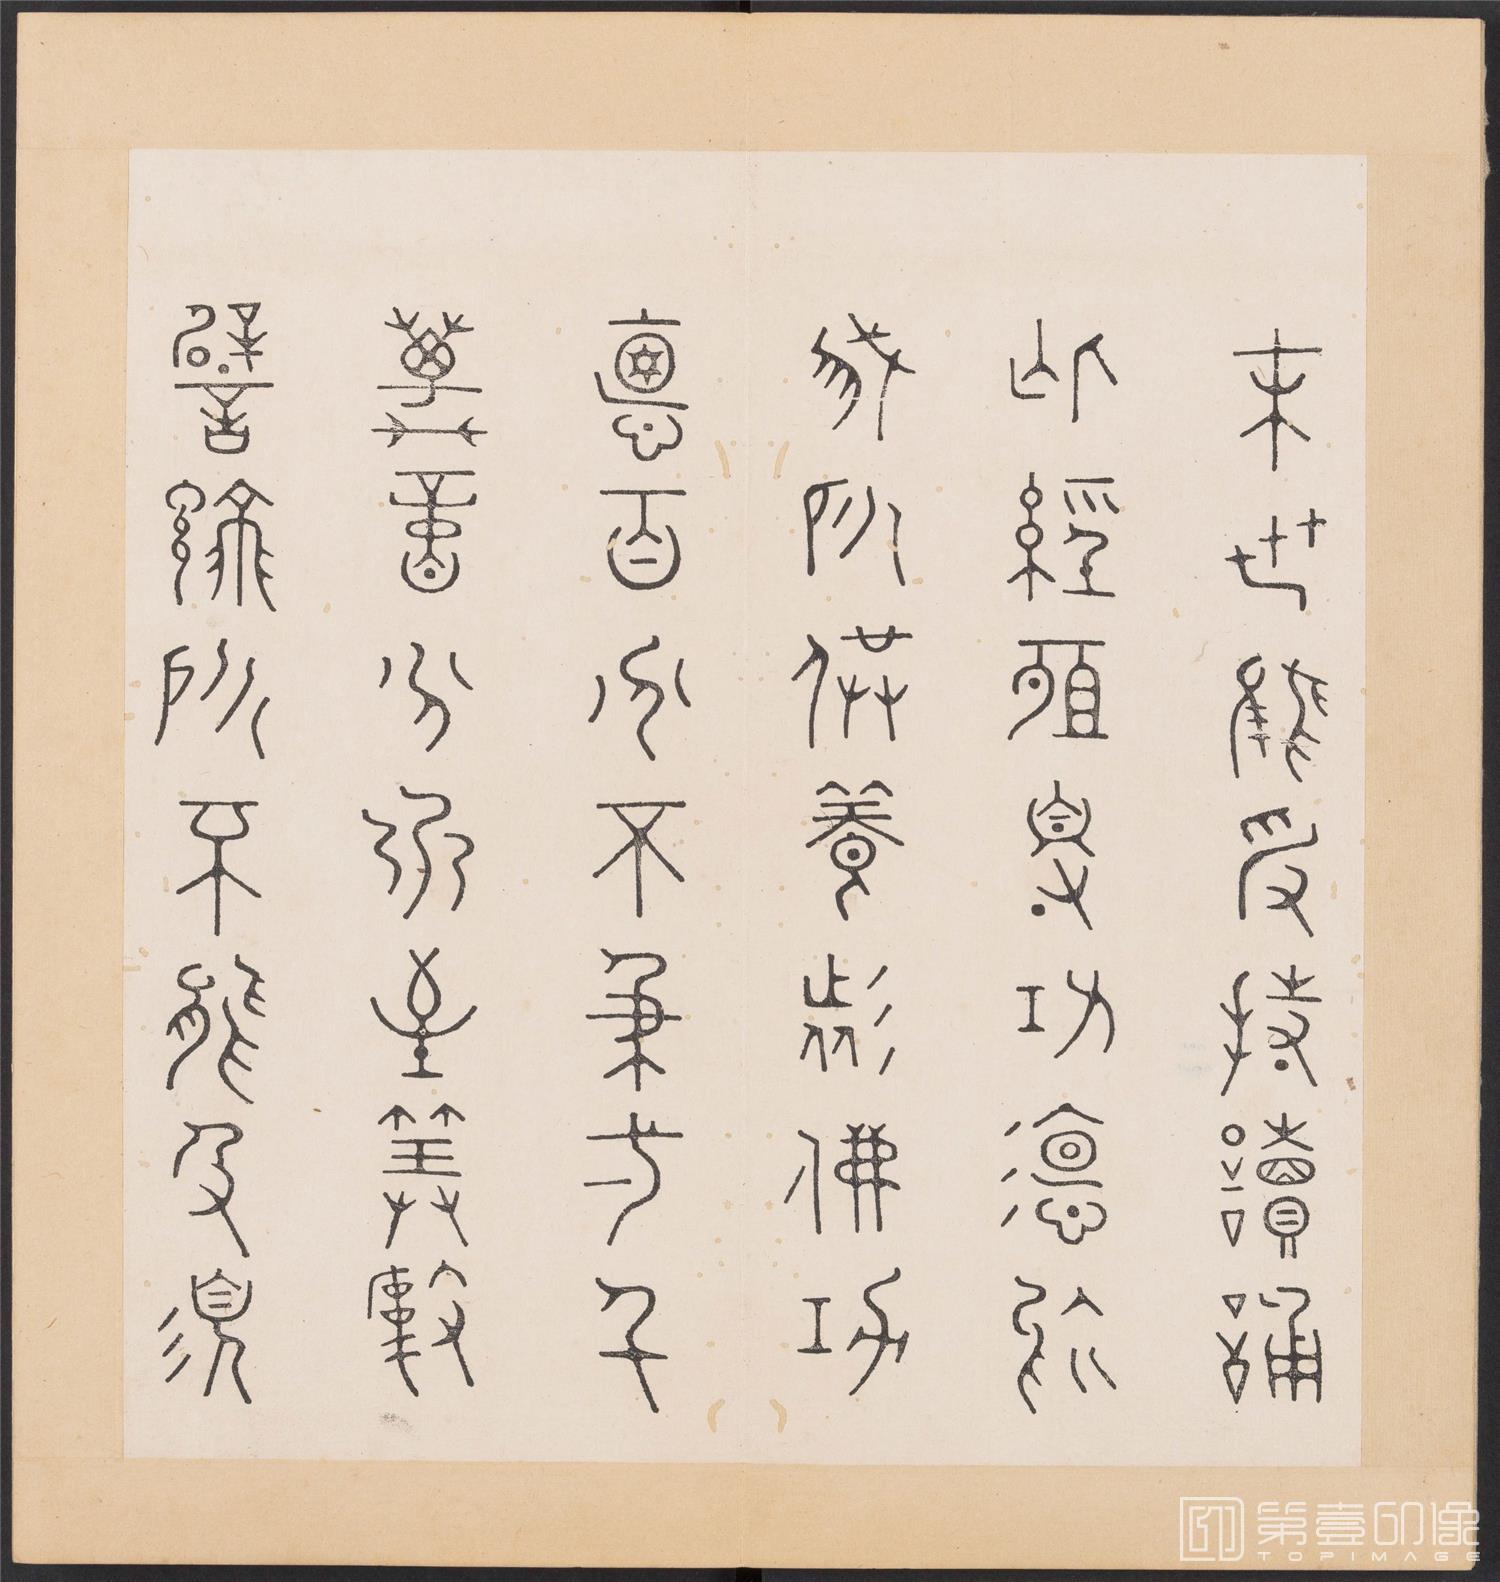 末世能受持讀誦
此經所得功德於
我所供養諸佛功
德百分不及一千
萬億分乃至算數
譬喻所不能及須
第壹印像
TOPIMAGE